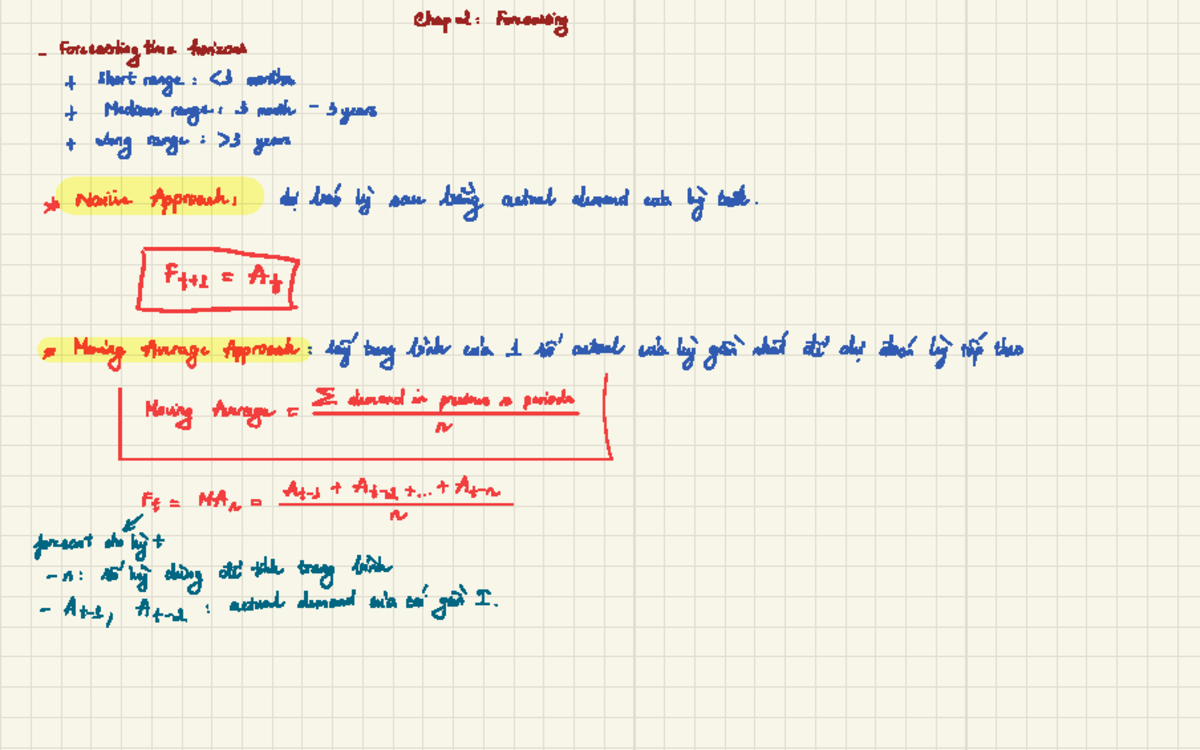 Chap 2: Forecasting
- Forecasting time horizons
+ Short range: <3 months
+ Medium range: 3 month - 3 years
+ Long range: >3 years
* Naive Approach: dự báo kỳ sau bằng actual demand của kỳ trước.
F_{t+1} = A_t
* Moving Average Approach: lấy trung bình của 1 số actual của kỳ gần nhất để dự đoán kỳ tiếp theo
Moving Average = Σ demand in previous n periods / n
F_t = MA_n = A_{t-1} + A_{t-2} + ... + A_{t-n} / n
forecast cho kỳ t
- n: số kỳ dùng để tính trung bình
- A_{t-1}, A_{t-2}: actual demand của gần